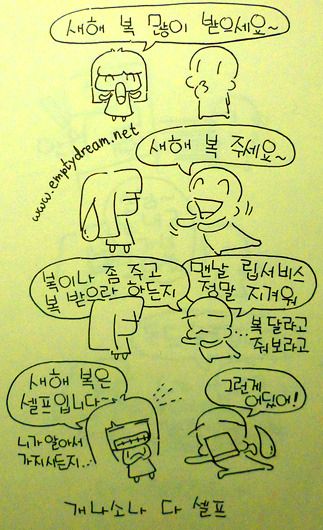 새해 복 많이 받으세요~
www.emptydream.net
새해 복 주세요~
복이나 좀 주고
복 받으란 하든지
맨날 립서비스
정말 지겨워
...복 달라고
줘보라고
새해 복은
셀프입니다~
니가 알아서
가지시든지...
그런게
어딨어!
개나소나 다 셀프